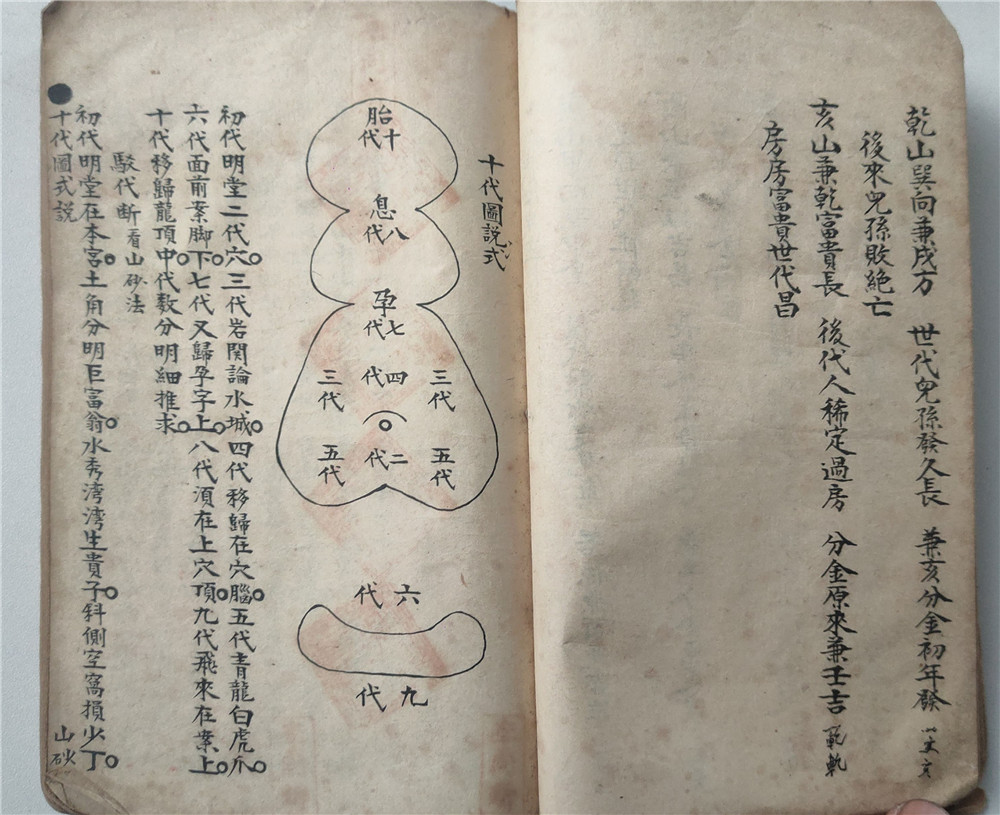 乾山巽向兼戌方 世代兒孫發久長 兼亥分金初年發
後來兒孫敗絶亡
亥山兼乾富貴長 後代人稀定過房 分金原來兼壬吉
房房富貴世代昌
十代圖説式
胎
十代
息
八代
孕
七代
三代 四代 三代
五代 二代 五代
六代
九代
初代明堂二代穴。三代岩関論水城。四代移歸在穴腦。五代青龍白虎爪。
六代面前案脚下。七代又歸孕字上。八代須在上穴頂。九代飛來在案上。
十代移歸龍頂中代数分明細推求。
駁代断看山砂法
初代明堂在本宮。土角分明巨富翁。水秀湾湾生貴子。斜側空窩損少丁。
十代圖式説 山砂